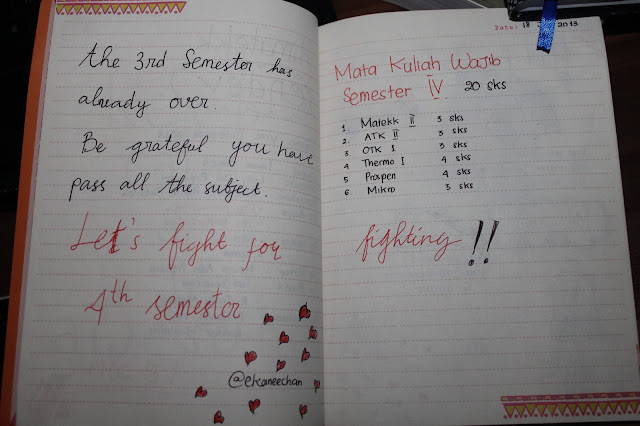 the 3rd Semester has
already over.
Be grateful you have
pass all the subject.
Let's fight for
4th semester
@ekaneechan
Date: 18 2013
Mata Kuliah Wajib
Semester IV 20 sks
1. Matekk II 3 sks
2. ATK II 3 sks
3. OTK I 3 sks
4 Thermo I 4 sks
5 Propen 4 sks
6 Mikro 3 sks
fighting !!